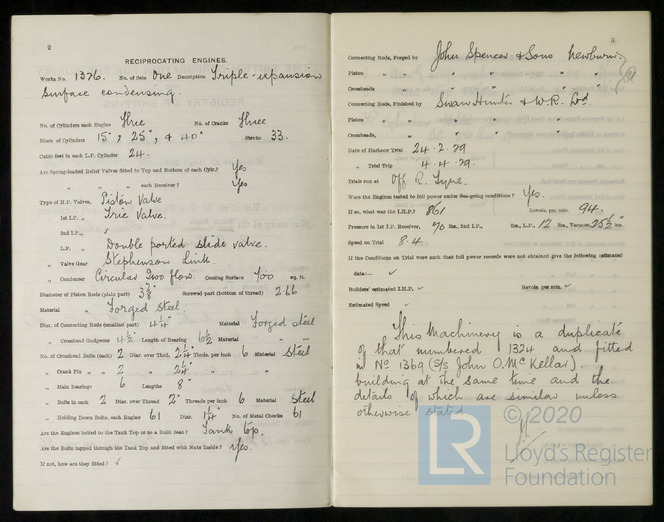 2
RECIPROCATING ENGINES.
Works No. 1376. No. of Sets One Description Triple-expansion
surface condensing.
No. of Cylinders each Engine Three No. of Cranks Three
Diars. of Cylinders 15", 25", & 40" Stroke 33.
Cubic feet in each L.P. Cylinder 24.
Are Spring-loaded Relief Valves fitted to Top and Bottom of each Cylr.? Yes
" " " each Receiver? Yes
Type of H.P. Valves, Piston Valve
1st I.P. " Tric Valve.
2nd I.P. " /
L.P. " Double ported slide valve.
" Valve Gear Stephenson Link.
" Condenser Circular Two flow. Cooling Surface 700 sq. ft.
Diameter of Piston Rods (plain part) 3 7/8" Screwed part (bottom of thread) 2.66
Material Forged steel.
Diar. of Connecting Rods (smallest part) 4 1/4" Material Forged steel
" Crosshead Gudgeons 4 1/2" Length of Bearing 6 1/2" Material "
No. of Crosshead Bolts (each) 2 Diar. over Thrd. 2 1/4" Thrds. per inch 6 Material Steel
" Crank Pin " 2 " 2 1/4" " "
" Main Bearings 6 Lengths 8"
" Bolts in each 2 Diar. over Thread 2" Threads per inch 6 Material Steel
" Holding Down Bolts, each Engine 61 Diar. 1 1/4" No. of Metal Chocks 61
Are the Engines bolted to the Tank Top or to a Built Seat? Tank top.
Are the Bolts tapped through the Tank Top and fitted with Nuts Inside? Yes.
If not, how are they fitted? ✓
3
Connecting Rods, Forged by John Spencer & Sons Newburn
Piston " " " " " "
Crossheads " " " " " "
Connecting Rods, Finished by Swan Hunter & W.R. Ltd.
Piston " " " " "
Crossheads, " " " " "
Date of Harbour Trial 24.2.29
" Trial Trip 4.4.29.
Trials run at Off R. Tyne.
Were the Engines tested to full power under Sea-going conditions? Yes.
If so, what was the I.H.P.? 861 Revols. per min. 94.
Pressure in 1st I.P. Receiver, 70 lbs., 2nd I.P., lbs., L.P., 12 lbs., Vacuum, 25 1/2 ins.
Speed on Trial 8.4
If the Conditions on Trial were such that full power records were not obtained give the following estimated
data:— ✓
Builders' estimated I.H.P. ✓ Revols. per min. ✓
Estimated Speed ✓
This Machinery is a duplicate
of that numbered 1324 and fitted
in No 1369 (S/S John O. McKellar).
building at the same time and the
details of which are similar unless
otherwise stated.
© 2020
LR
Lloyd's Register
Foundation